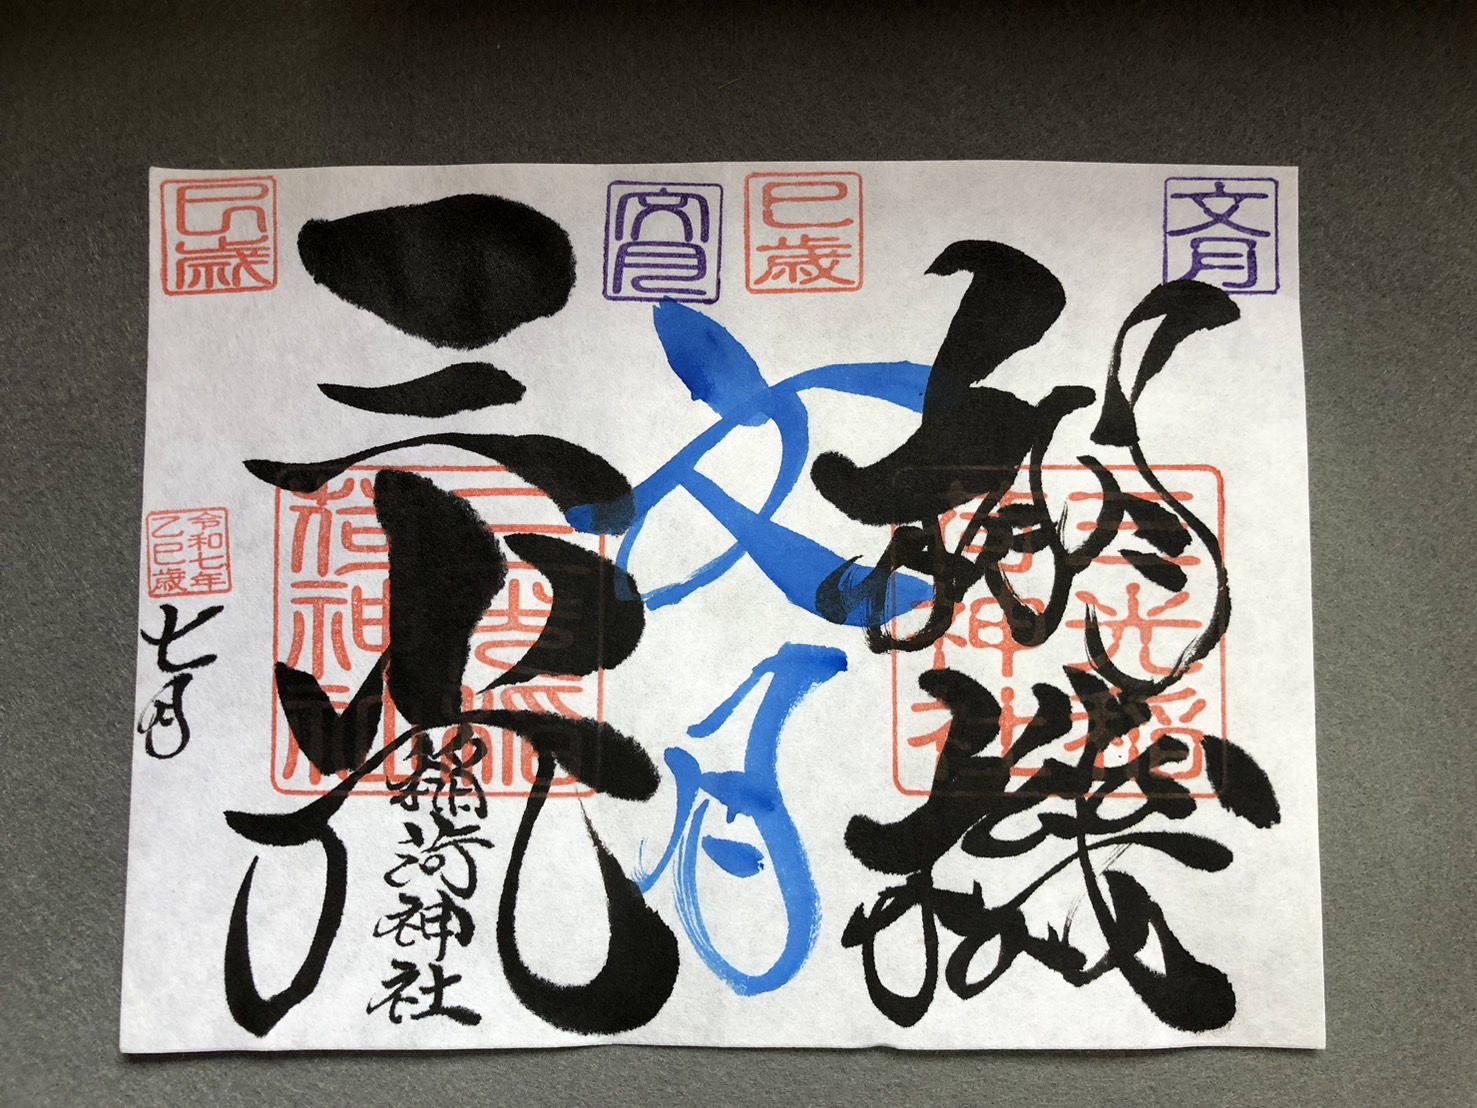 文月
機
三光稲
荷神社
巳歳
文月
文月
三光
稲荷神社
三光稲
荷神社
巳歳
令和七年
乙巳歳
七月